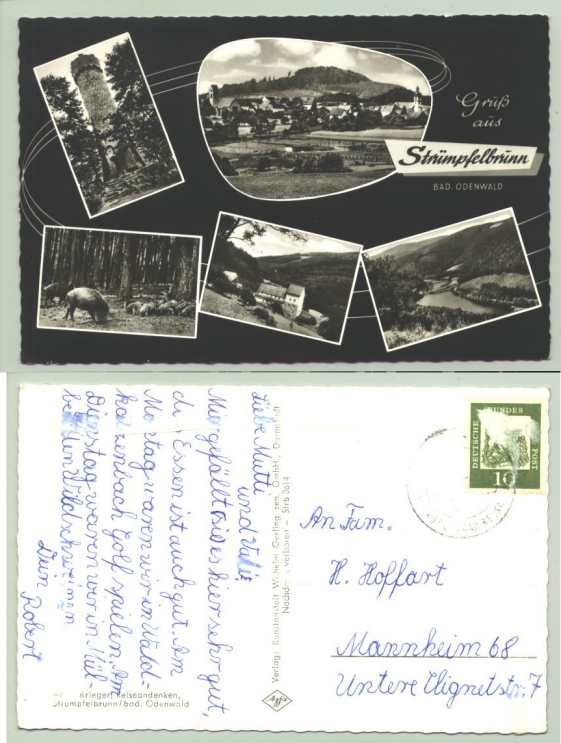 Gruß
aus
Strümpfelbrunn
BAD. ODENWALD
Liebe Mutti
und Vati
Mir gefällt es hier sehr gut,
das Essen ist auch gut. Am
Montag waren wir in Wald-
katzenbach Golf spielen. Am
Dienstag waren wir in Mül-
ben Wildschweinen
Dein Robert
Krieger, Reiseandenken,
Strümpfelbrunn/bad. Odenwald
Verlag: Kunstanstalt Wilhelm Gerling GmbH., Darmstadt
Nachdruck verboten – Strb 3614
Agfa
DEUTSCHE
BUNDES
POST
10
An Fam.
H. Hoffart
Mannheim 68
Untere 7